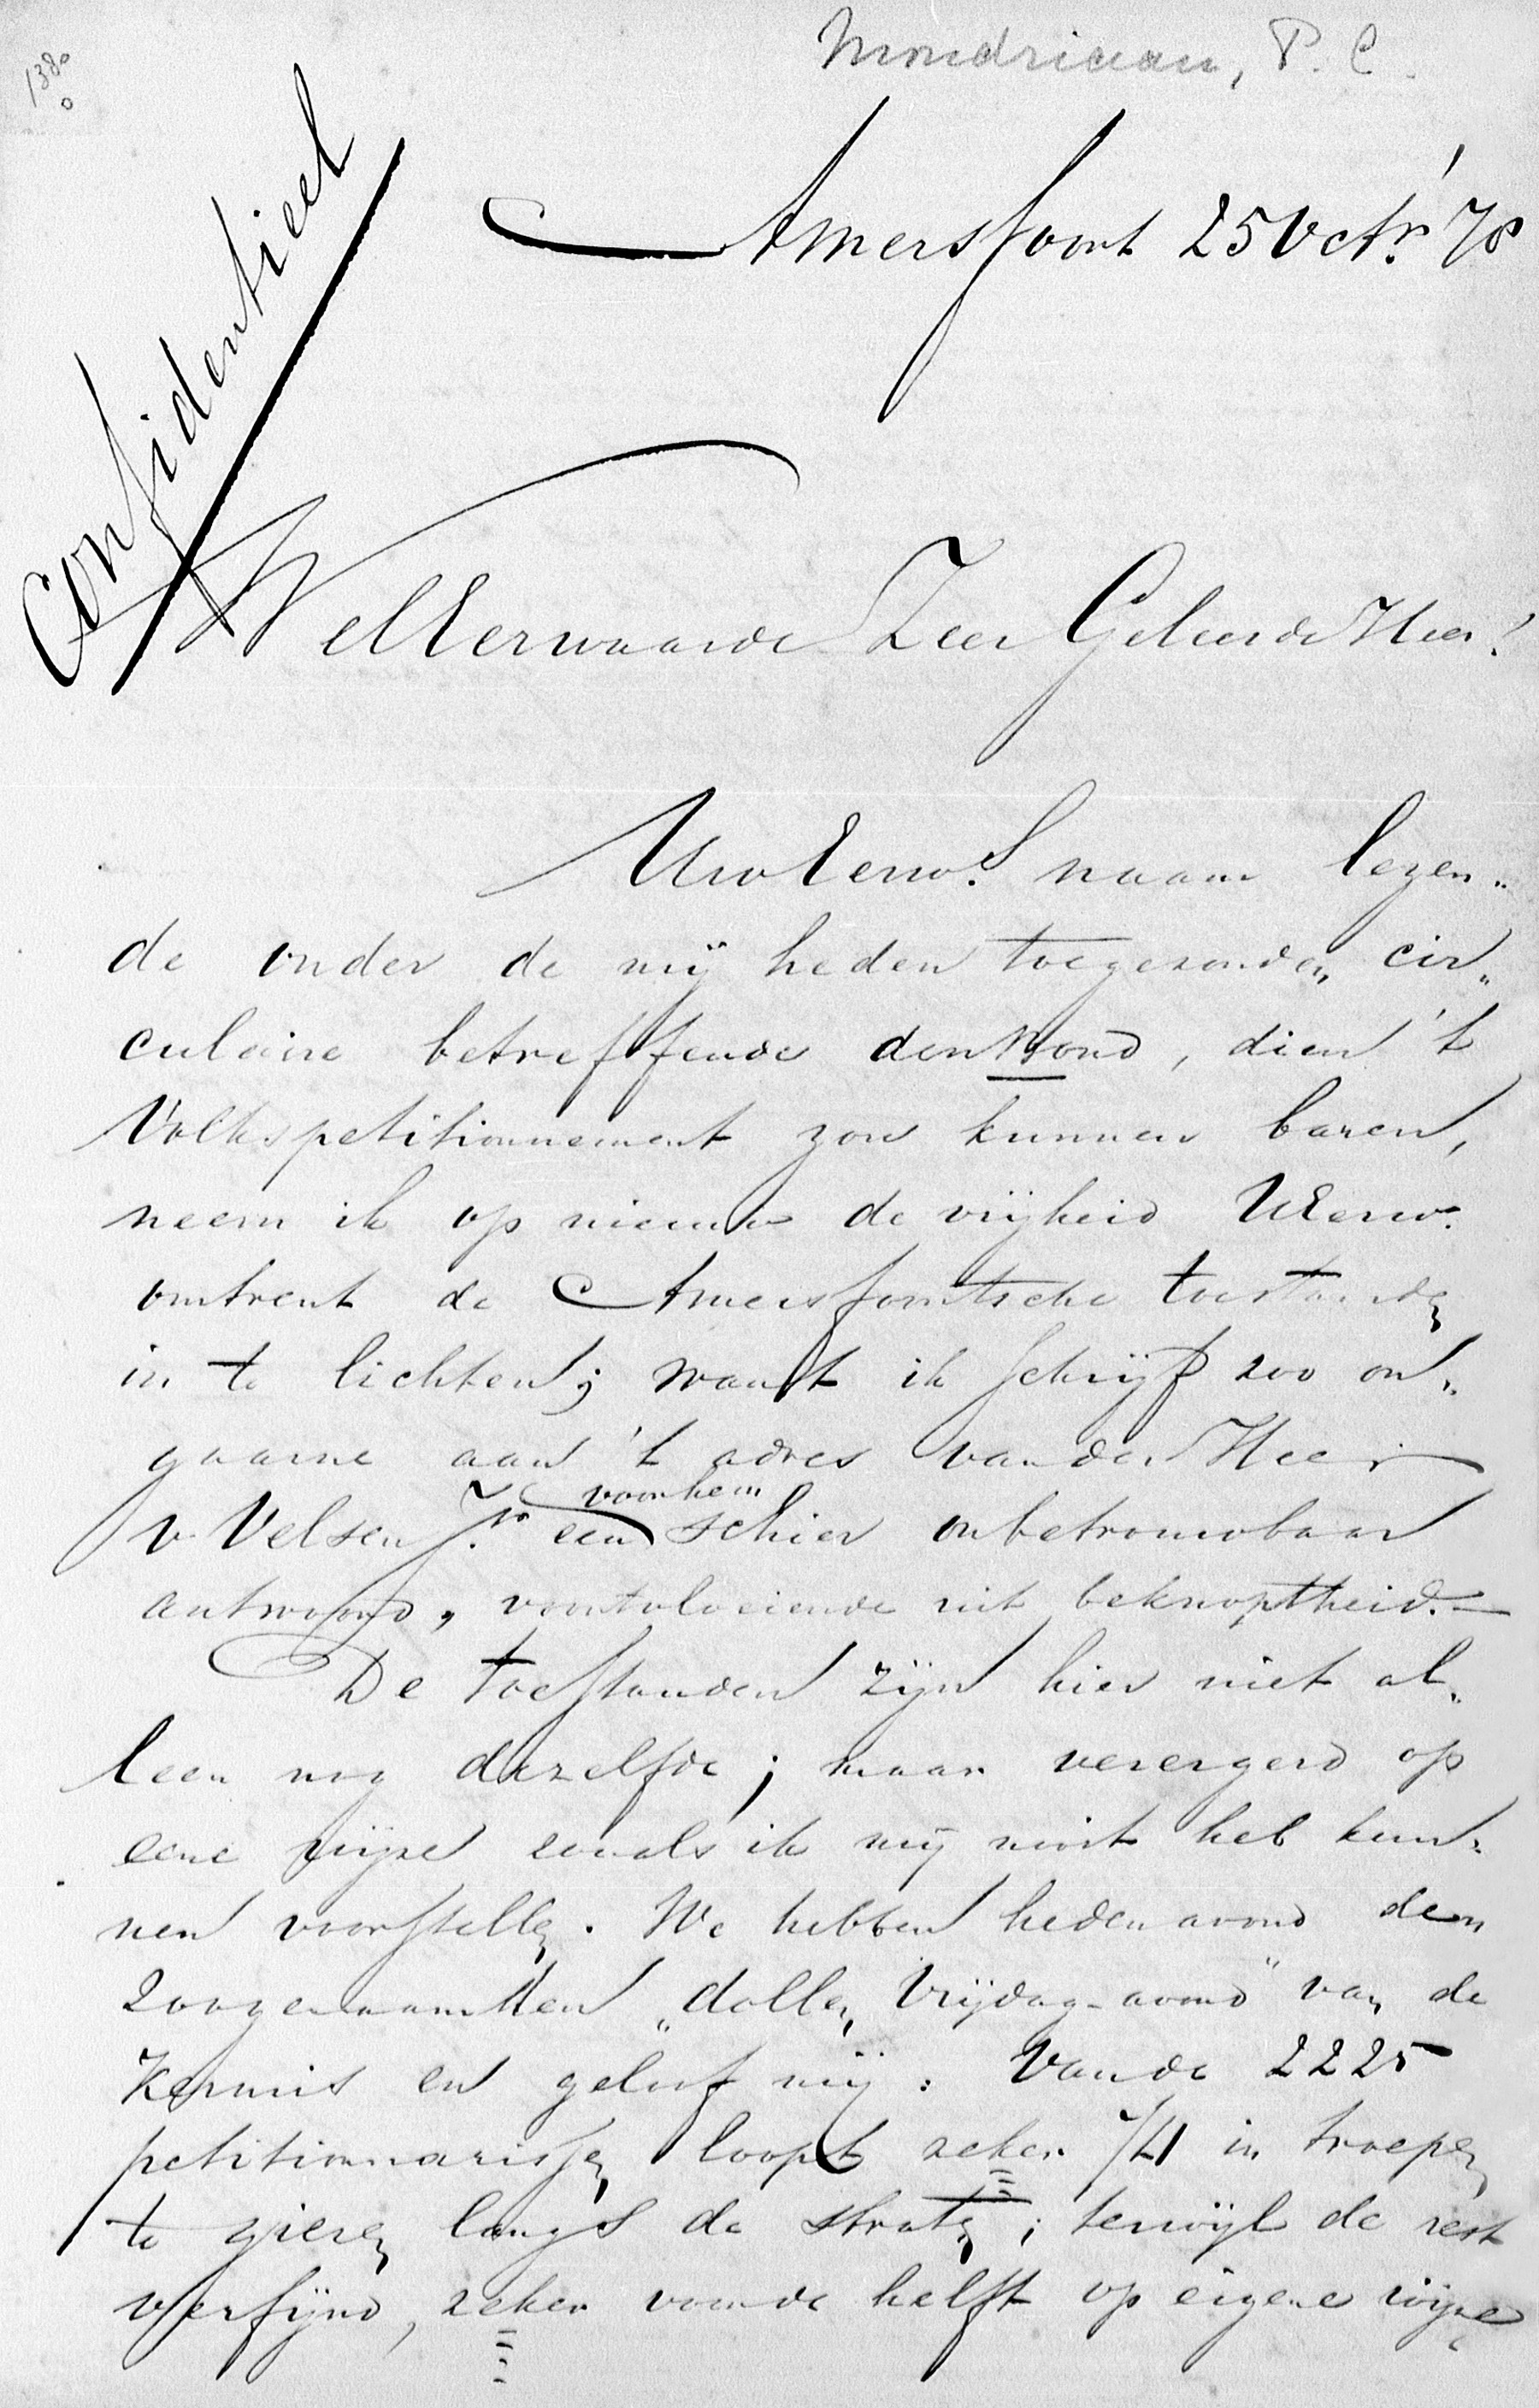 1380
Mondriaan, P. C.
Confidentieel
Amersfoort 25 Octr. '78
WelEerwaarde Zeer Geleerde Heer!
UwEerws. naam lezen„
de onder de mij heden toegezonden cir„
culaire betreffende den Bond, dien 't
Volkspetitionnement zou kunnen baren,
neem ik op nieuw de vrijheid UEerw.
omtrent de Amersfoortsche toestanden
in te lichten; want ik schrijf zoo on„
gaarne aan 't adres van den Heer
v. Velsen Jr. een voor hem schier onbetrouwbaar
antwoord, voortvloeiende uit beknoptheid. —
De toestanden zijn hier niet al„
leen nog dezelfde; maar verergerd op
eene wijze zooals ik mij nooit heb kun„
nen voorstellen. We hebben heden avond den
zoogenaamden „dollen Vrijdag-avond" van de
Kermis en geloof mij: Van de 2225
petitionnarissen loopt zeker in troepen
te gieren langs de straten; terwijl de rest
verfijnd, zeker voor de helft op eigene wijze